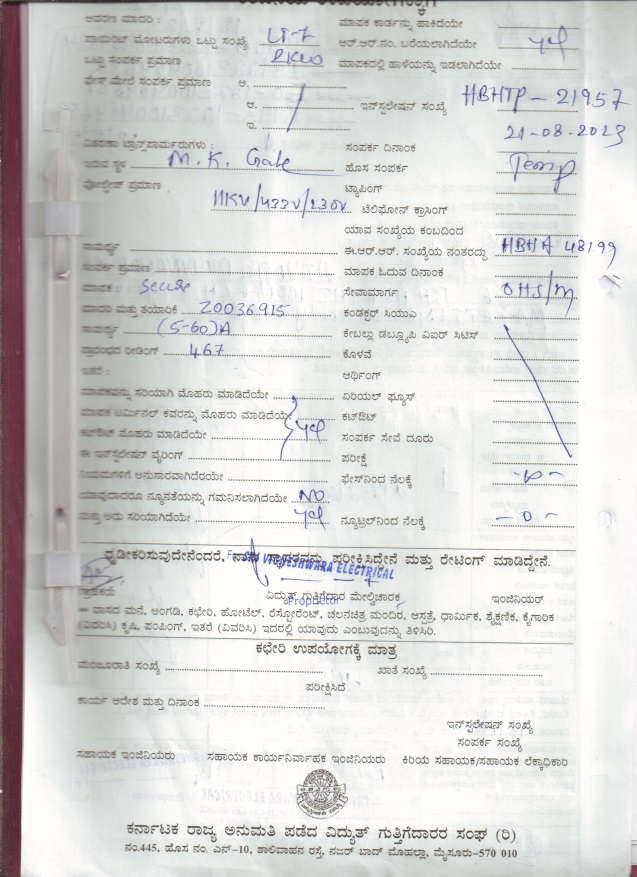 ಆವರಣ ಮಾದರಿ : ಮಾಪಕ ಕಾರ್ಡನ್ನು ಹಾಕಿದೆಯೇ
ಪಾಯಿಂಟ್ ಮೋಟರುಗಳು ಒಟ್ಟು ಸಂಖ್ಯೆ LT-7 ಆರ್.ಆರ್.ನಂ. ಬರೆಯಲಾಗಿದೆಯೇ yes
ಒಟ್ಟು ಸಂಪರ್ಕ ಪ್ರಮಾಣ 2KW ಮಾಪಕದಲ್ಲಿ ಹಾಳೆಯನ್ನು ಇಡಲಾಗಿದೆಯೇ
ಫೇಸ್ ಮೇಲೆ ಸಂಪರ್ಕ ಪ್ರಮಾಣ ಅ.
ಆ. ಇನ್‌ಸ್ಟಲೇಷನ್ ಸಂಖ್ಯೆ HBHTP - 21957
ಇ. 21-08-2023
ವಿತರಣಾ ಟ್ರಾನ್ಸ್‌ಪಾರ್ಮರುಗಳು : ಸಂಪರ್ಕ ದಿನಾಂಕ
ಇರುವ ಸ್ಥಳ M.K. Gate ಹೊಸ ಸಂಪರ್ಕ Temp
ವೋಲ್ಟೇಜ್ ಪ್ರಮಾಣ ಟ್ಯಾಪಿಂಗ್
11KV/433V/230V. ಟೆಲಿಫೋನ್ ಕ್ರಾಸಿಂಗ್
ಯಾವ ಸಂಖ್ಯೆಯ ಕಂಬದಿಂದ
ಸಾಮರ್ಥ್ಯ ಈ.ಆರ್.ಆರ್. ಸಂಖ್ಯೆಯ ನಂತರದ್ದು HBHA 48199
ಸಂಪರ್ಕ ಪ್ರಮಾಣ ಮಾಪಕ ಓದುವ ದಿನಾಂಕ
ಮಾಪಕ : Secure ಸೇವಾಮಾರ್ಗ OHS/M
ಮಾದರಿ ಮತ್ತು ತಯಾರಿಕೆ 20036915 ಕಂಡಕ್ಟರ್ ಸಿಯುಎ
ಸಾಮರ್ಥ್ಯ (5-60)A ಕೇಬಲ್ಲು ಡಬ್ಲ್ಯೂಪಿ ವಿಐರ್ ಸಿಟಿಸ್
ಪ್ರಾರಂಭದ ರೀಡಿಂಗ್ 467 ಕೊಳವೆ
ಇತರೆ : ಆರ್ಥಿಂಗ್
ಮಾಪಕವನ್ನು ಸರಿಯಾಗಿ ಮೊಹರು ಮಾಡಿದೆಯೇ ಏರಿಯಲ್ ಫ್ಯೂಸ್
ಮಾಪಕ ಟರ್ಮಿನಲ್ ಕವರನ್ನು ಮೊಹರು ಮಾಡಿದೆಯೇ ಕಟ್‌ಔಟ್
ಕಟ್‌ಔಟ್ ಮೊಹರು ಮಾಡಿದೆಯೇ yes ಸಂಪರ್ಕ ಸೇವೆ ದೂರು
ಈ ಇನ್‌ಸ್ಟಲೇಷನ್ ವೈರಿಂಗ್ ಪರೀಕ್ಷೆ
ನಿಯಮಗಳಿಗೆ ಅನುಸಾರವಾಗಿದೆಯೇ ಫೇಸ್‌ನಿಂದ ನೆಲಕ್ಕೆ
ಯಾವುದಾದರೂ ನ್ಯೂನತೆಯನ್ನು ಗಮನಿಸಲಾಗಿದೆಯೇ NO
ಮತ್ತು ಅದು ಸರಿಯಾಗಿದೆಯೇ yes ನ್ಯೂಟ್ರಲ್‌ನಿಂದ ನೆಲಕ್ಕೆ - 0 -
ಧೃಡೀಕರಿಸುವುದೇನೆಂದರೆ, ನಾನು ಸ್ಥಾವರವನ್ನು ಪರೀಕ್ಷಿಸಿದ್ದೇನೆ ಮತ್ತು ರೇಟಿಂಗ್ ಮಾಡಿದ್ದೇನೆ.
VIGNESHWARA ELECTRICAL
ಗ್ರಾಹಕರು ವಿದ್ಯುತ್ ಗುತ್ತಿಗೆದಾರ ಮೇಲ್ವಿಚಾರಕ ಇಂಜಿನಿಯರ್
Proprietor
ವಾಸದ ಮನೆ, ಅಂಗಡಿ, ಕಛೇರಿ, ಹೋಟೆಲ್, ರೆಸ್ಟೋರೆಂಟ್, ಚಲನಚಿತ್ರ ಮಂದಿರ, ಆಸ್ಪತ್ರೆ, ಧಾರ್ಮಿಕ, ಶೈಕ್ಷಣಿಕ, ಕೈಗಾರಿಕ
(ವಿವರಿಸಿ) ಕೃಷಿ, ಪಂಪಿಂಗ್, ಇತರೆ (ವಿವರಿಸಿ) ಇದರಲ್ಲಿ ಯಾವುದು ಎಂಬುವುದನ್ನು ತಿಳಿಸಿರಿ.
ಕಛೇರಿ ಉಪಯೋಗಕ್ಕೆ ಮಾತ್ರ
ಮಂಜೂರಾತಿ ಸಂಖ್ಯೆ ಖಾತೆ ಸಂಖ್ಯೆ
ಪರೀಕ್ಷಿಸಿದೆ
ಕಾರ್ಯ ಆದೇಶ ಮತ್ತು ದಿನಾಂಕ
ಇನ್‌ಸ್ಟಲೇಷನ್ ಸಂಖ್ಯೆ
ಸಂಪರ್ಕ ಸಂಖ್ಯೆ
ಸಹಾಯಕ ಇಂಜಿನಿಯರು ಸಹಾಯಕ ಕಾರ್ಯನಿರ್ವಾಹಕ ಇಂಜಿನಿಯರು ಕಿರಿಯ ಸಹಾಯಕ/ಸಹಾಯಕ ಲೆಕ್ಕಾಧಿಕಾರಿ
ಕರ್ನಾಟಕ ರಾಜ್ಯ ಅನುಮತಿ ಪಡೆದ ವಿದ್ಯುತ್ ಗುತ್ತಿಗೆದಾರರ ಸಂಘ (ರಿ)
ನಂ.445, ಹೊಸ ನಂ. ಎನ್-10, ಶಾಲಿವಾಹನ ರಸ್ತೆ, ನಜರ್ ಬಾದ್ ಮೊಹಲ್ಲಾ, ಮೈಸೂರು-570 010